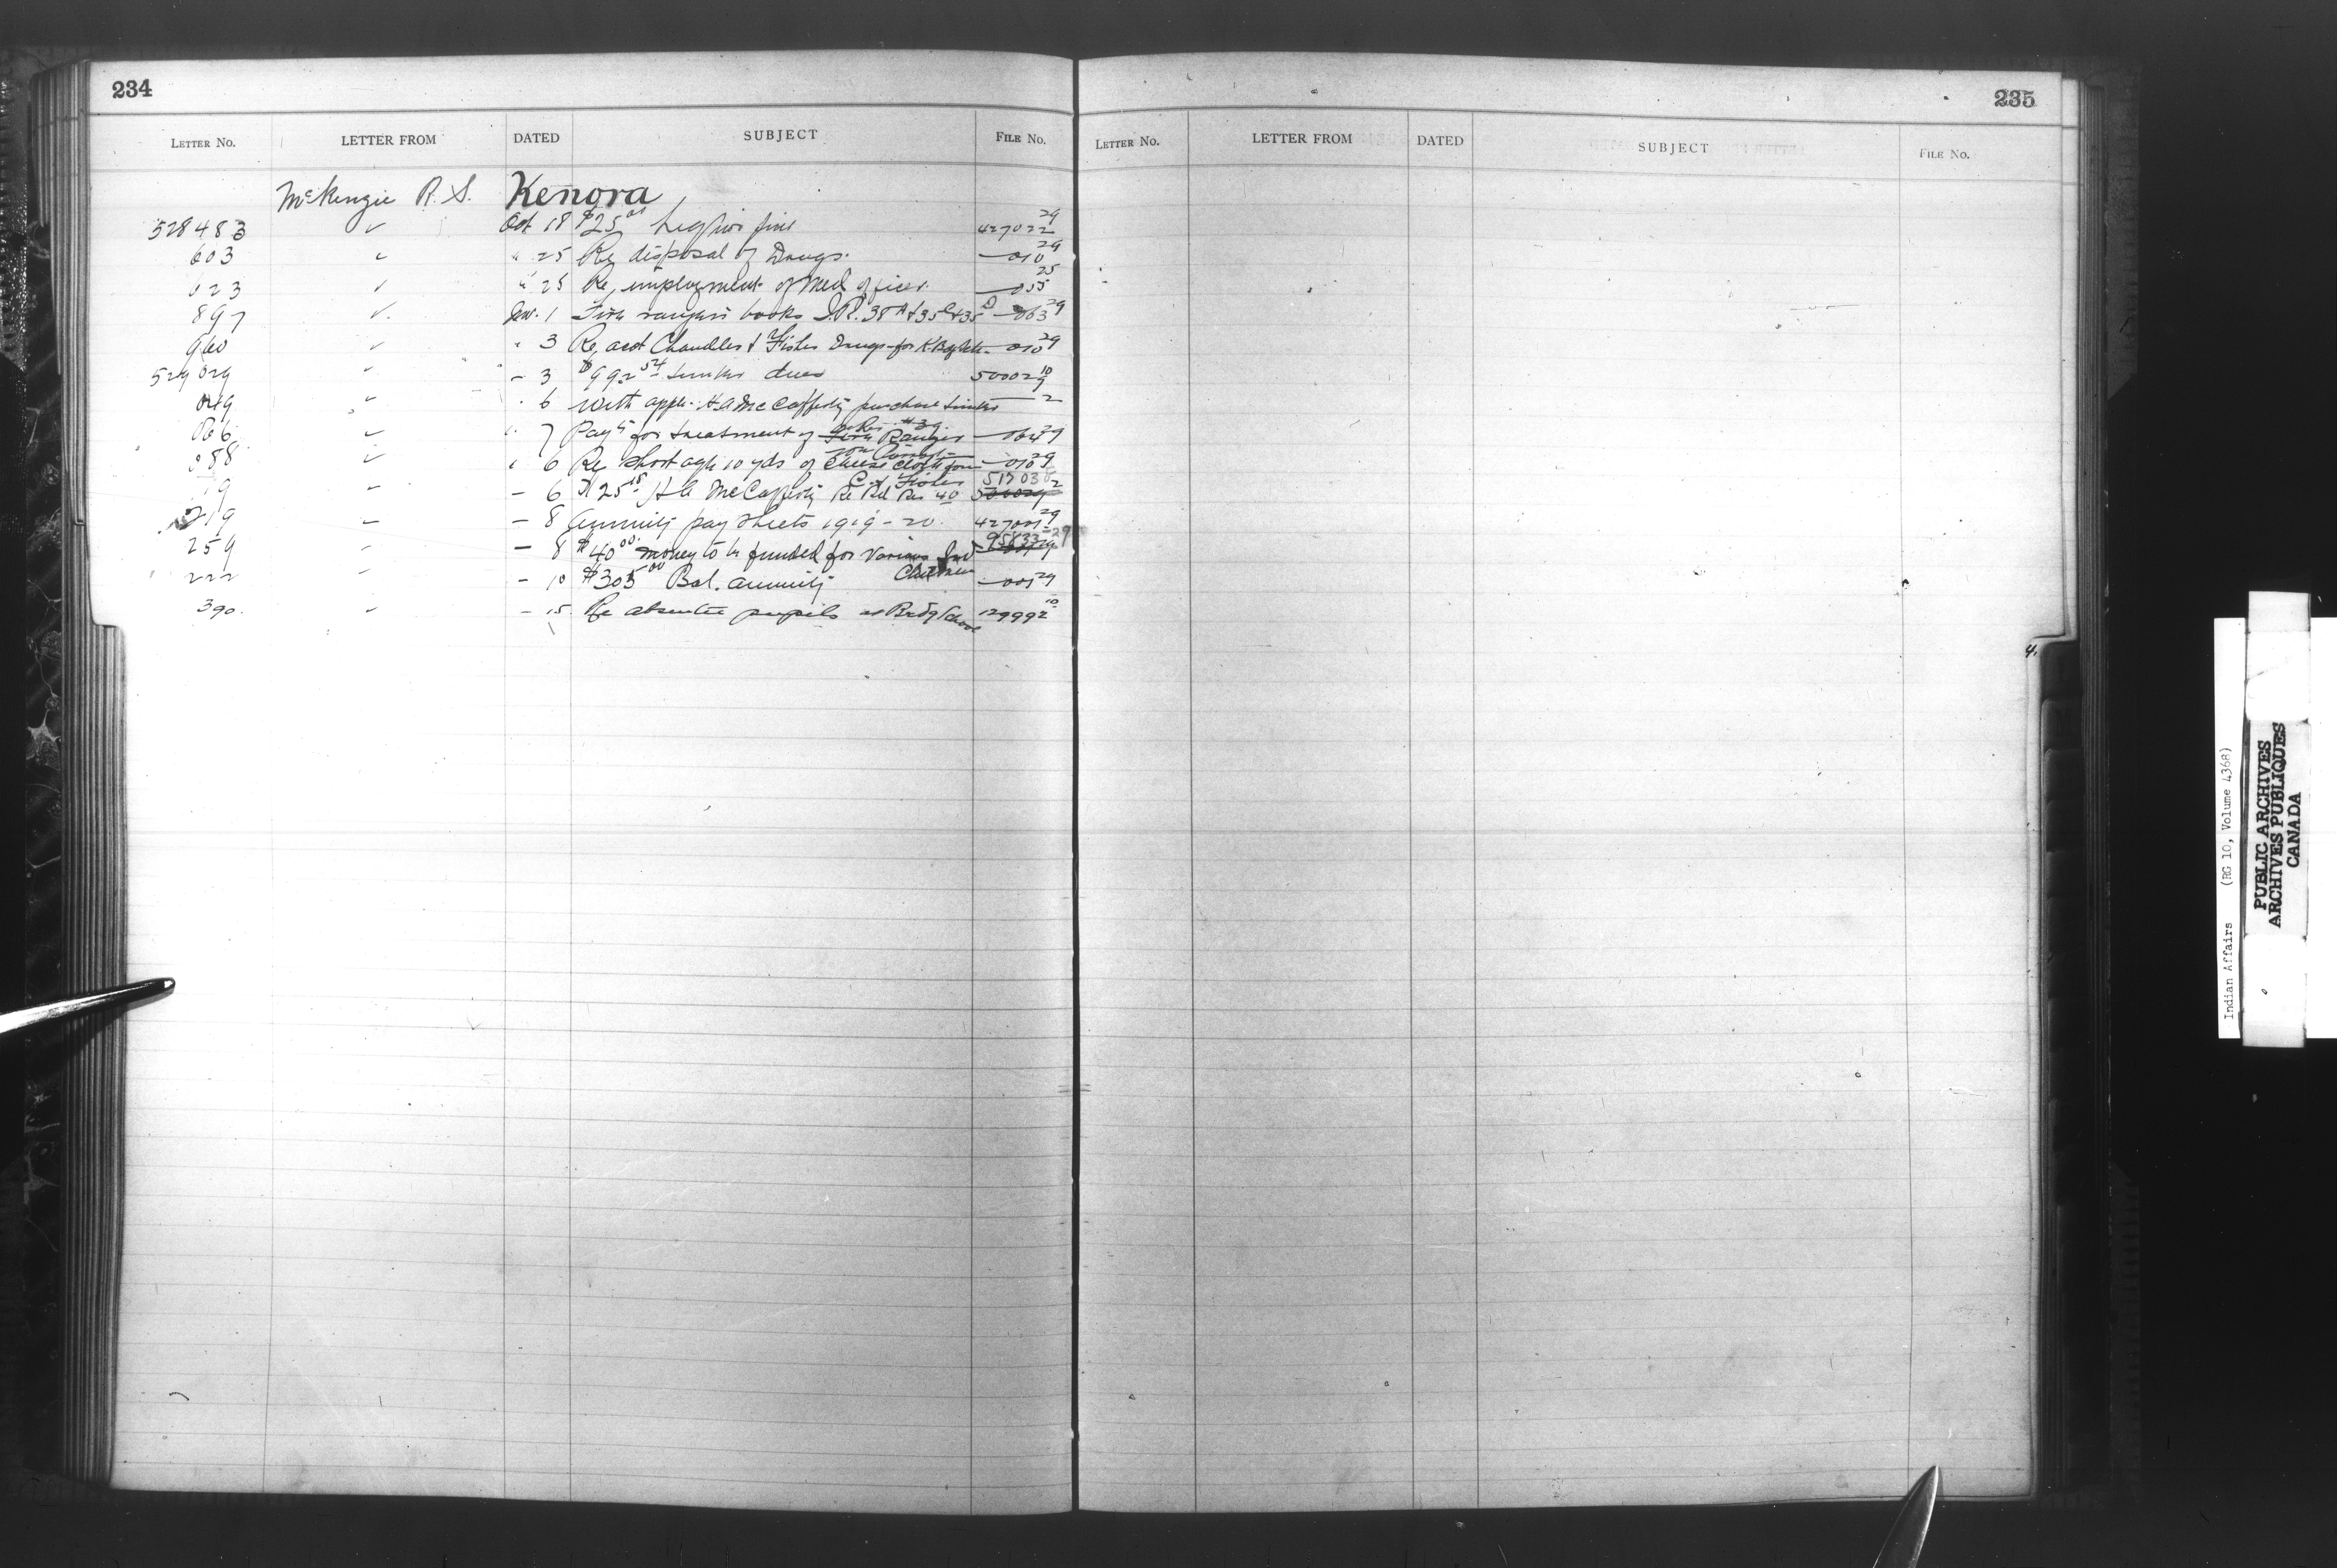 234
LETTER No. LETTER FROM DATED SUBJECT FILE No.
McKenzie R. S. Kenora
528483 ✓ Oct 18 $25 fine 427022 29
603 ✓ " 25 Re disposal of Drugs. — 010 29
023 ✓ " 25 Re, employment of Med officer. — 055 25
897 ✓ Nov. 1 Fire rangers books I.R. 38 A & 35 C & 35 D — 063 29
960 ✓ " 3 Re, acct Chandler & Fisher Drugs for — 010 29
529029 ✓ – 3 $992 54 timber dues 50002 10
049 ✓ " 6 With appln. H A McCafferty purchase timber — 2
066 ✓ " 7 Payt for treatment of Fire Ranger — 064 29
088 ✓ " 6 Re Shortage 10 yds of Cheese cloth from — 010 29
C. & Fisher
– 6 $25 H A McCafferty Re 40 517030 2
219 – 8 Annuity pay sheets 1919-20. 427001 29
259 – 8 $40 00 money to be funded for various Ind Children 95833-29
222 – 10 $305 00 Bal. annuity — 001 29
390. ✓ – 15 Re absentee pupils at Brdg School 129992 10
235
LETTER No. LETTER FROM DATED SUBJECT FILE No.
4.
Indian Affairs (RG 10, Volume 4368)
PUBLIC ARCHIVES
ARCHIVES PUBLIQUES
CANADA